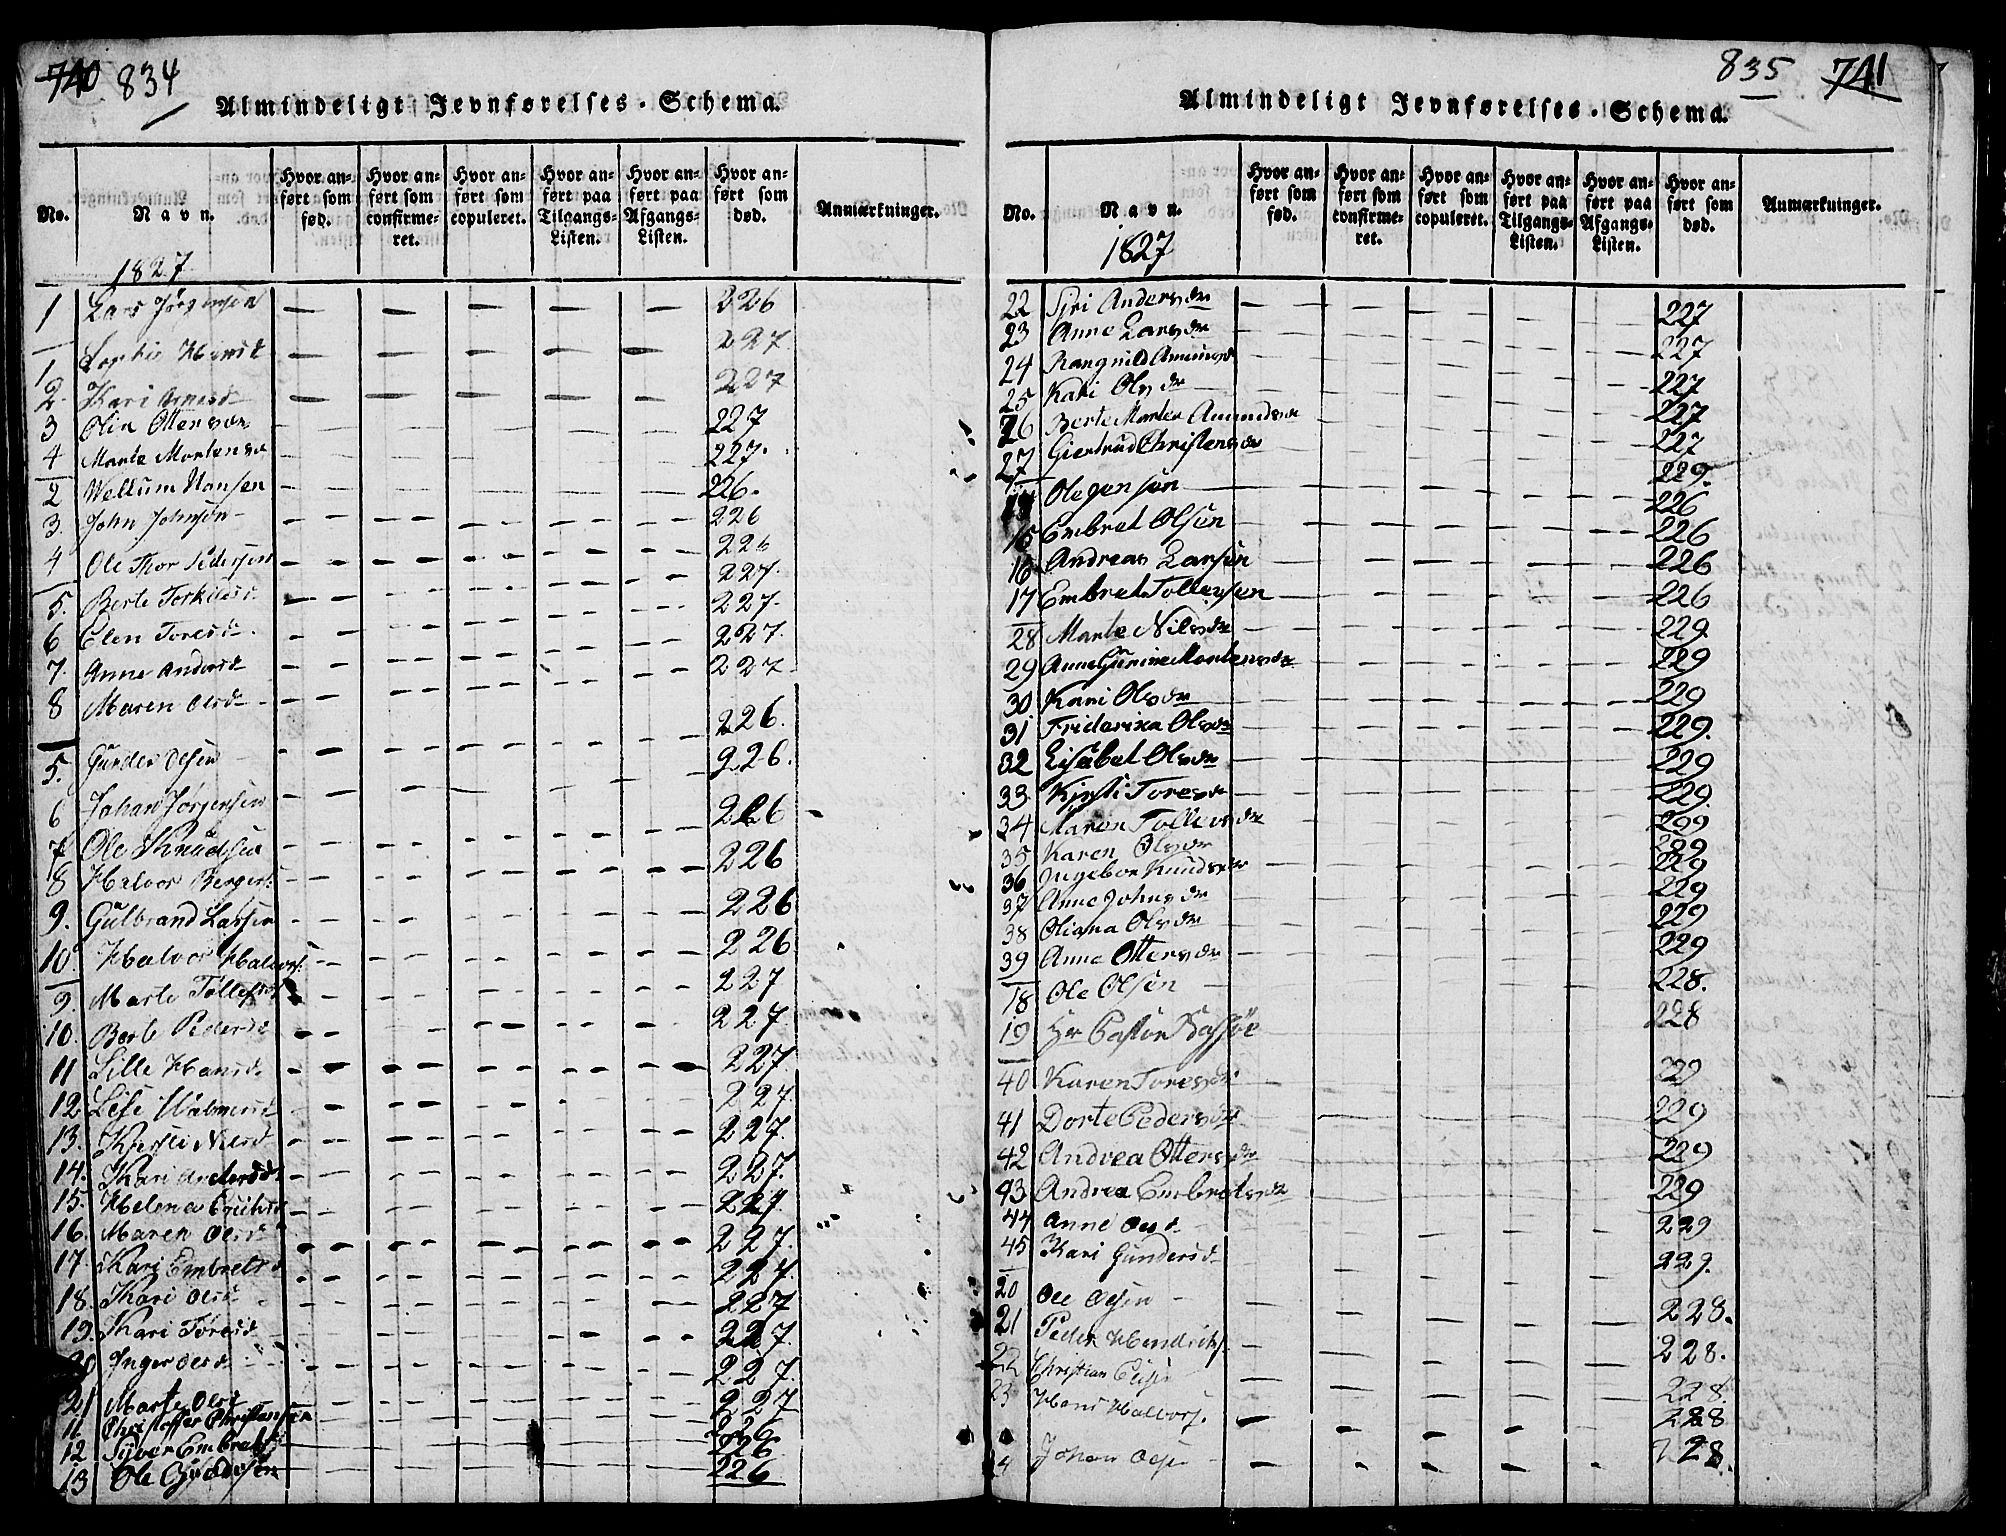 740 834
Almindeligt Jevnførelses-Schema.
No.
Navn.
Hvor anført som fød.
Hvor anført som confirmeret.
Hvor anført som copuleret.
Hvor anført paa Tilgangs-Listen.
Hvor anført paa Afgangs-Listen.
Hvor anført som død.
Anmærkninger.
1827
1 Lars Jørgensen 226
1 Sophie Hansd 227
2 Kari Arnesd 227
3 Olia Ottersdr 227
4 Marte Mortensdr 227.
2 Wellum Hansen 226.
3. John Johnsen 226
4 Ole Thor Pedersen 226
5. Berte Torkildsd 227.
6 Elen Toresd. 227.
7. Anne Andersd 227.
8 Maren Olsd 227
5. Gunder Olsen 226.
6 Johan Jørgensen 226.
7 Ole Knudsen 226
8 Halvor Bergers. 226
9. Gulbrand Larsen 226
10. Halvor Halvors. 226
9. Marte Tollefsd 227
10. Berte Pedersd 227
11 Lille Hansd. 227.
12 Lise Halvorsd 227
13. Kjersti Nilsd 227.
14. Kari Andersd 227.
15. Helena 227
16. Maren Olsd 227.
17. Kari Embretsd 227.
18. Kari Olsd 227
19. Kari Toresd 227.
20 Inger Olsd 227.
21 Marte Olsd 227
11 Christoffer Christiansen 226
12 Syver Embretsen 226
13 Ole 226
835 741
Almindeligt Jevnførelses-Schema.
No.
Navn.
Hvor anført som fød.
Hvor anført som confirmeret.
Hvor anført som copuleret.
Hvor anført paa Tilgangs-Listen.
Hvor anført paa Afgangs-Listen.
Hvor anført som død.
Anmærkninger.
1827
22 Siri Andersdr 227
23 Anne Larsdr 227
24 Rangnild Amunsdr 227
25 Kari Olsdr 227
26 Berte Marten Amundsdr 227
27 Giertrud Christensdr 229.
Ole Jensen 226
15 Embret Olsen 226
16 Andreas Larsen 226
17 Embret Tollevsen 226
28 Marte Nilsdr 229.
29 Anne Gurine Mortensdr 229
30 Kari Olsdr 229
31 Friderica Olsdr 229.
32 Lisabet Olsdr 229
33 Kjersti Toresdr 229.
34 Maren Tollevsdr 229
35 Karen Olsdr 229
36 Ingebor Knudsdr 229
37 Anne Johnsdr 229
38 Oliana Olsdr 229
39 Anne Ottersdr 229
18 Ole Olsen 228.
19 Hr Pastor 228
40 Karen Toresdr 229
41 Dorte Pedersdr 229
42 Andrea Ottersdr 229
43 Andrea Embretsdr 229
44 Anne Olsd 229
45 Kari Gundersd 229.
20 Ole Olsen 228.
21 Peder Hendriks. 228.
22 Christian 228
23 Hans Halvors. 228
Johan Olsen 228.